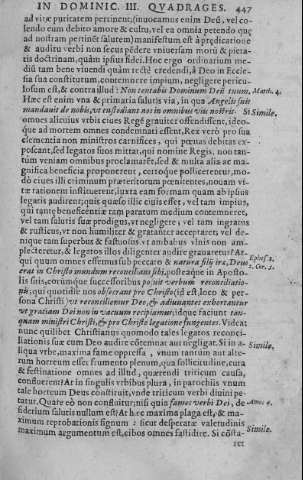 IN DOMINIC. III. QVADRAGES. 447
ad vitæ puritatem pertinent, (inuocamus enim Deũ, vel co-
lendo eum debito amore & cultu, vel ea omnia petendo quę
ad nostram pertinẽt salutem) manifestum est à prædicatione
& auditu verbi non secus pẽdere vniuersam morũ & pieta-
tis doctrinam, quàm ipsius fidei. Hoc ergo ordinarium me-
diũ tam bene viuendi quàm rectè credendi, à Deo in Eccle-
sia sua constitutum, contemnere impium, negligere pericu-
losum est, & contra illud: Non tentabis Dominum Deũ tuum, Matth. 4.
Hæc est enim vna & primaria salutis via, in qua Angelis suis
mandauit de nobis, vt custodiant nos in omnibus viis nostris. Si Simile.
omnes alicuius vrbis ciues Regẽ grauiter offendissent, ideo-
que ad mortem omnes condemnati essent, Rex verò pro sua
clementia non ministros carnifices, qui pœnas debitas ex-
poscant, sed legatos suos mittat, qui nomine Regis, non tan-
tum veniam omnibus proclamarẽt, sed & multa alia ac ma-
gnifica beneficia proponerent, certoque pollicerentur, mo-
dò ciues illi criminum præteritorum pœnitentes, nouam vi-
tæ rationem instituerent, iuxta eam formam quam ab ipsius
legatis audirent; quis quæso illic ciuis esset, vel tam impius,
qui tantę beneficentiæ tam paratum medium contemneret,
vel tam salutis suæ prodigus, vt negligere; vel tam ingratus
& rusticus, vt non humiliter & gratanter acceptaret; vel de-
nique tam superbus & fastuosus vt ambabus vlnis non am-
plecteretur, & legatos illos diligenter audire grauaretur? At-
qui quum omnes essemus sub peccato & natura filij iræ, Deus Ephes. 2.
erat in Christo mundum reconcilians sibi, posteaque in Aposto- 2. Cor. 5.
lis suis, eorumque successoribus posuit verbum reconciliatio-
nis; qui quotidie nos obsecrant pro Christo (id est loco & per-
sona Christi) vt reconciliemur Deo, & adiuuantes exhortantur
vt gratiam Dei non in vacuum recipiamus: idque faciunt tan-
quam ministri Christi, & pro Christo legatione fungentes. Videat
nunc quilibet Christianus quomodo tales legatos reconci-
liationis suæ cum Deo audire cõtemnat aut negligat. Si in a- Simile.
liqua vrbe, maxima fame oppressa, vnum tantum aut alte-
rum horreum esset frumento plenum, qua sollicitudine, cura
& festinatione omnes ad illud, quærendi triticum causa,
confluerent? At in singulis vrbibus plura, in parochiis vnum
tale horreum Deus constituit, vnde triticum verbi diuini pe-
tatur. Quare eò non confluitur; nisi quia fames verbi Dei, de Amos 8.
siderium salutis nullum est? At hæc maxima plaga est, & ma-
ximum reprobationis signum: sicut desperatæ valetudinis Simile.
maximum argumentum est, cibos omnes fastidire. Si cõsta-
ret